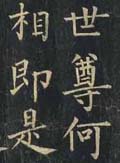 世尊何
相即是